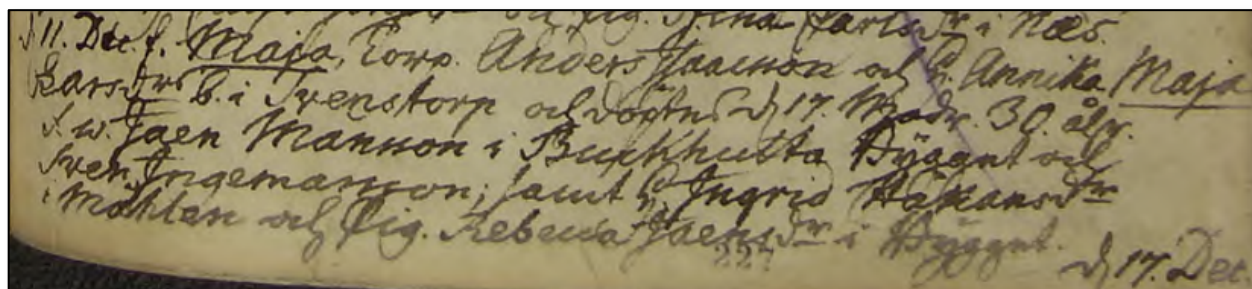 och Pig. Stina Carlsdr i Näs.
d 11. Dec. f. Maja, Corp. Anders Isacsson och h. Annika Maja
Larsdrs b. i Svenstorp och döptes d 17. Modr. 30. år.
S. w. Jaen Mansson i Buckhulta Hÿggnt och
Sven Ingemarsson; samt h. Ingrid Håkansdr
i Möhlan och Pig. Rebecca Jaensdr i Hÿggnt.
227
d 17. Dec.